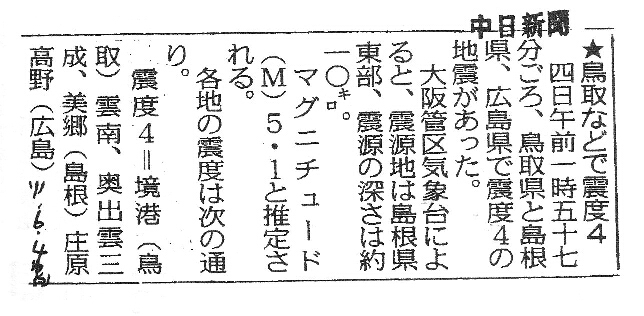 中日新聞
★鳥取などで震度4
四日午前一時五十七
分ごろ、鳥取県と島根
県、広島県で震度4の
地震があった。
大阪管区気象台によ
ると、震源地は島根県
東部、震源の深さは約
一〇㌔。
マグニチュード
(M)5・1と推定さ
れる。
各地の震度は次の通
り。
震度4=境港(鳥
取)雲南、奥出雲三
成、美郷(島根)庄原
高野(広島)
11.6.4